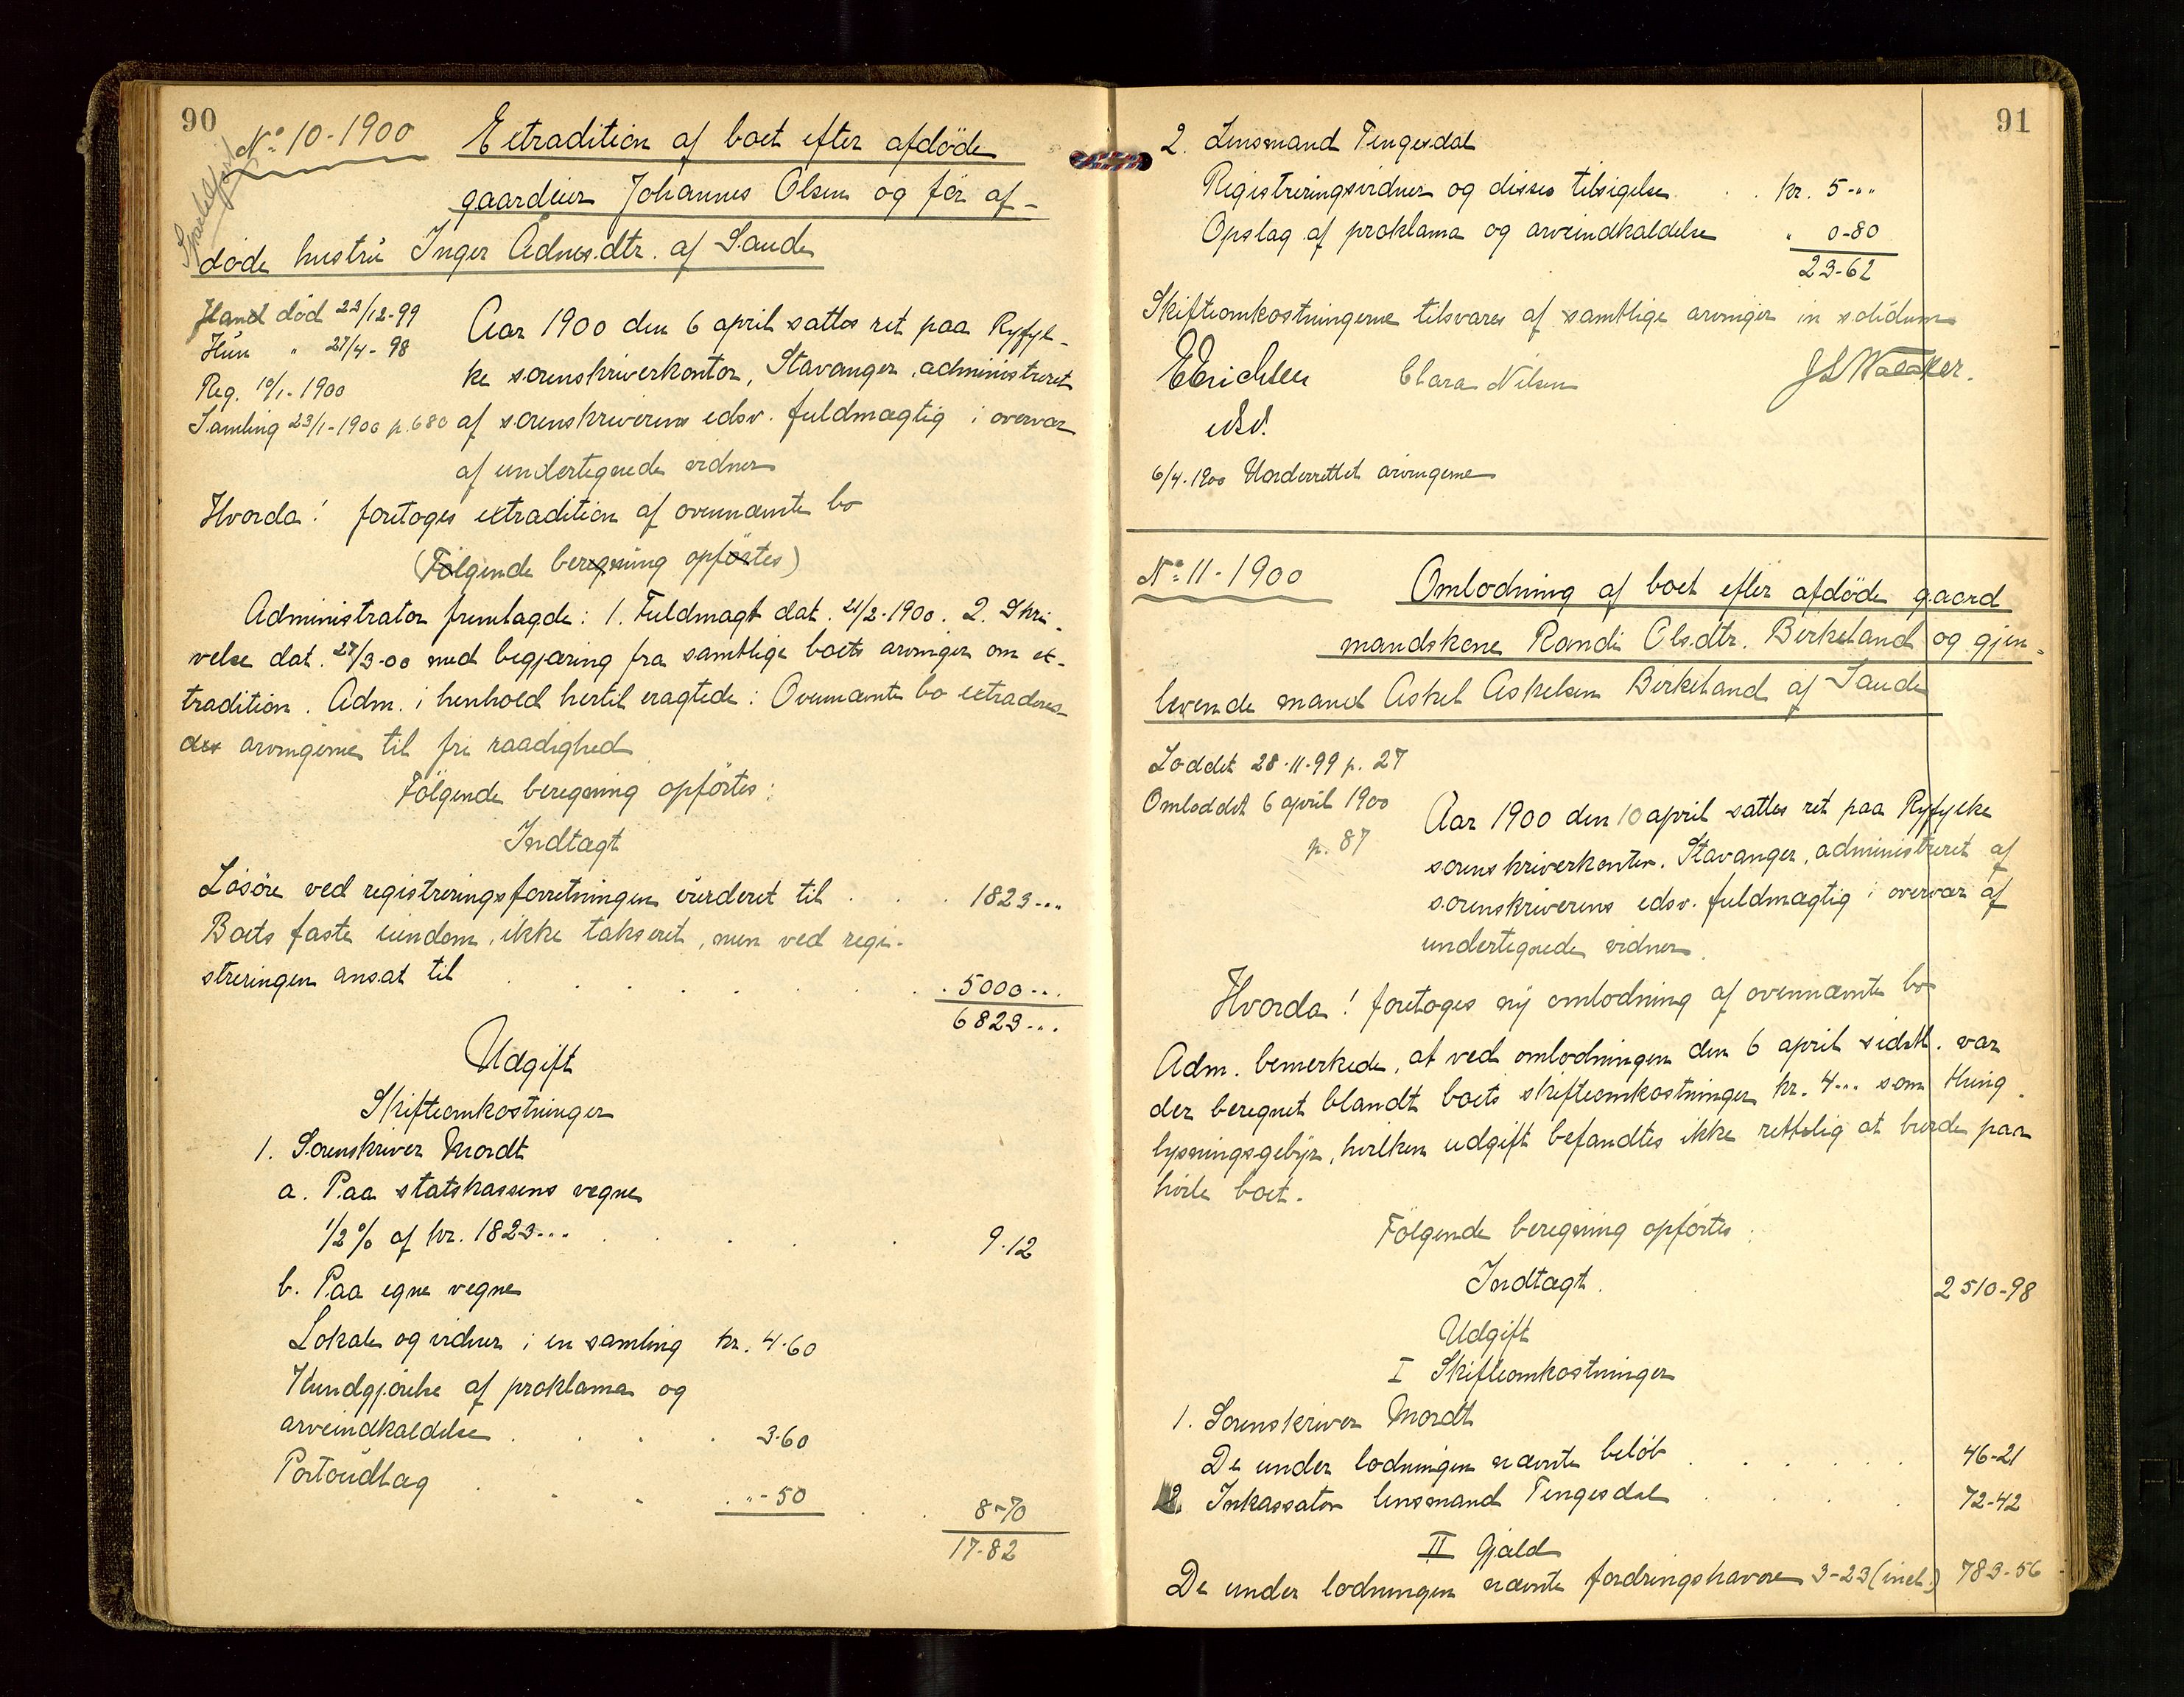 90
No 10-1900
Extradition af boet efter afdöde
gaardeier Johannes Olsen og før af-
døde hustru Inger Adnesdtr. af Saude
Hand död 22/12-99
Hun " 27/4-98
Reg. 10/1-1900
Samling 23/1-1900 p.680
Aar 1900 den 6 april sattes ret paa Ryfyl-
ke sorenskriverkontor, Stavanger, administreret
af sorenskriverens edsv. fuldmægtig i overvær
af undertegnede vidner
Hvorda! foretoges extradition af ovennævnte bo
(Følgende beregning opførtes)
Administrator fremlagde: 1. Fuldmagt dat. 21/2-1900. 2. Skri-
velse dat. 27/3-00 med begjæring fra samtlige boets arvinger om ex-
tradition. Adm. i henhold hertil eragtede: Ovennævnte bo extraderes
des arvingerne til fri raadighed
Følgende beregning opførtes:
Indtægt
Løsøre ved registreringsforretningen vurderet til . . . 1823-..
Boets faste eiendom, ikke takseret, men ved regi-
streringen ansat til . . . . . . 5000-..
6823-..
Udgift
Skifteomkostninger
1. Sorenskriver Mordt
a. Paa statskassens vegne
1/2 % af kr. 1823-.. . . . . 9.12
b. Paa egne vegne
Lokale og vidner i en samling kr. 4.60
Kundgjørelse af proklama og
arveindkaldelse . . . . 3.60
Portoudlæg . . . "-50 . . 8-70
17-82
91
2. Lensmand Tengesdal
Registreringsvidner og disses tilsigelse . . kr. 5-"
Opslag af proklama og arveindkaldelse " 0-80
23-62
Skifteomkostningerne tilsvares af samtlige arvinger in solidum
EErichsen Clara Nilsen
edsv.
6/4-1900 Underrettet arvingerne
No 11-1900
Omlodning af boet efter afdöde gaard
mandskone Randi Olsdtr. Birkeland og gjen-
levende mand Askel Askelsen Birkeland af Saude
Loddet 28-11-99 p. 27
Omloddet 6 april 1900
p. 87
Aar 1900 den 10 april sattes ret paa Ryfylke
sorenskriverkontor, Stavanger, administreret af
sorenskriverens edsv. fuldmægtig i overvær af
undertegnede vidner.
Hvorda! foretoges ny omlodning af ovennævnte bo
Adm. bemerkede, at ved omlodningen den 6 april sidstl. var
der beregnet blandt boets skifteomkostninger kr. 4-.. som thing-
lysningsgebyr, hvilken udgift befandtes ikke rettelig at burde paa
hvile boet.
Følgende beregning opførtes:
Indtægt. 2510-98
Udgift
I Skifteomkostninger
1. Sorenskriver Mordt
De under lodningen nævnte beløb . . . . . . 46-21
2. Inkassator lensmand Tengesdal . . . . 72-42
II Gjæld
De under lodningen nævnte fordringshavere 3-23 (incl.) 783-56